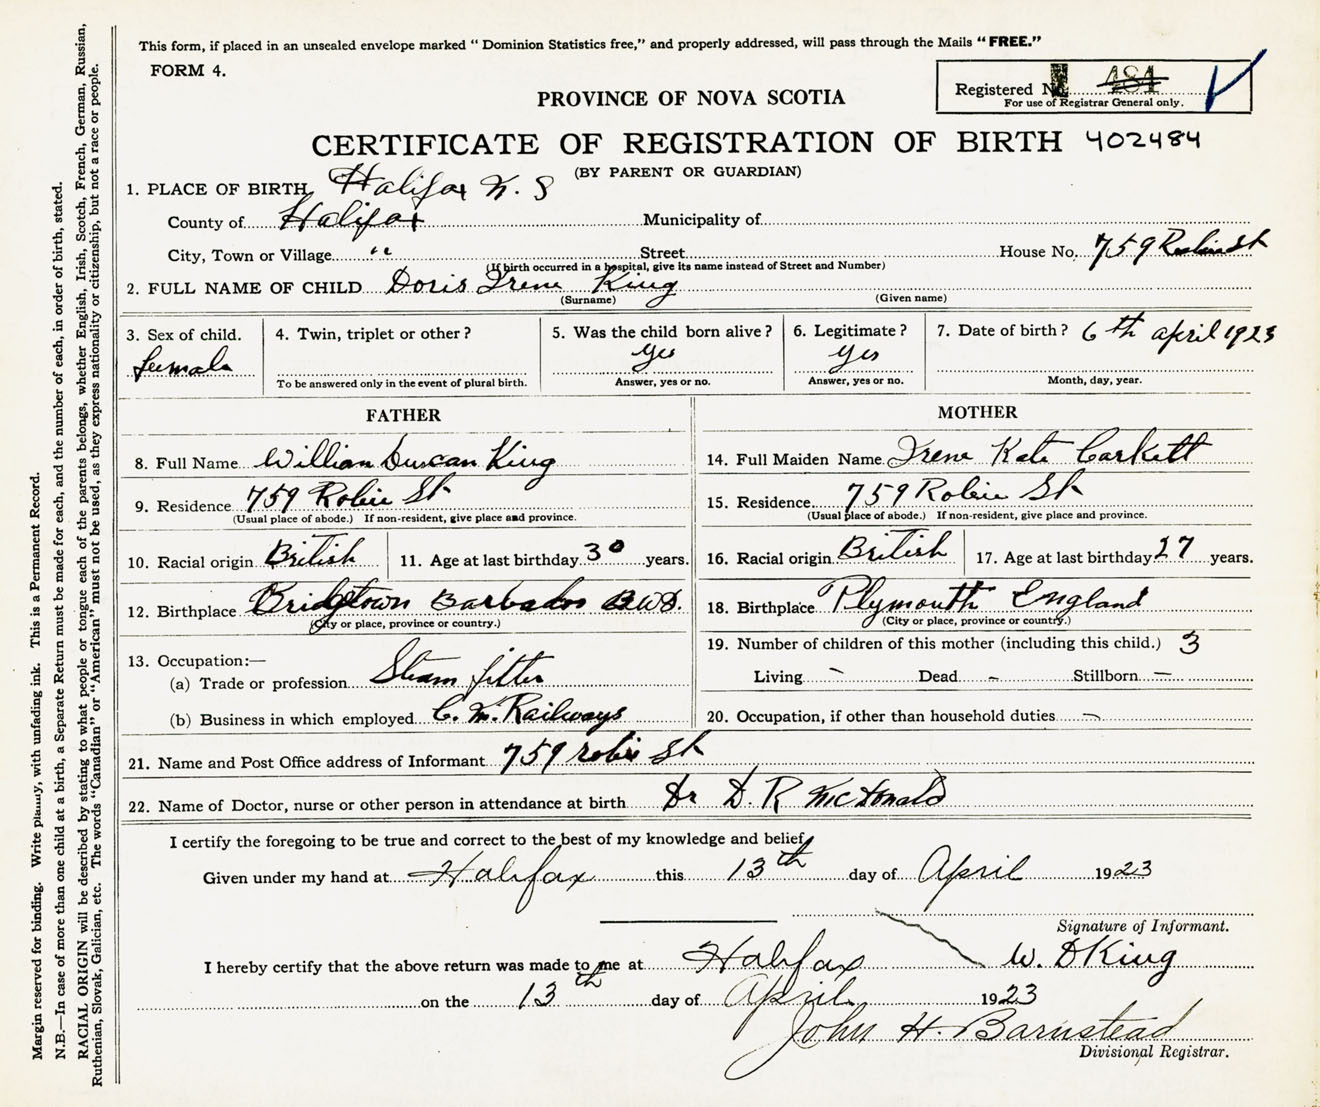 This form, if placed in an unsealed envelope marked " Dominion Statistics free," and properly addressed, will pass through the Mails " FREE."
FORM 4.
Registered No. 484
For use of Registrar General only.
PROVINCE OF NOVA SCOTIA
CERTIFICATE OF REGISTRATION OF BIRTH 402484
(BY PARENT OR GUARDIAN)
1. PLACE OF BIRTH Halifax N. S
County of Halifax Municipality of
City, Town or Village " Street House No. 759 Robie St
(If birth occurred in a hospital, give its name instead of Street and Number)
2. FULL NAME OF CHILD Doris Irene King
(Surname) (Given name)
3. Sex of child. 4. Twin, triplet or other ? 5. Was the child born alive ? 6. Legitimate ? 7. Date of birth ? 6th april 1923
female yes yes
To be answered only in the event of plural birth. Answer, yes or no. Answer, yes or no. Month, day, year.
FATHER
8. Full Name William Duncan King
9. Residence 759 Robie St
(Usual place of abode.) If non-resident, give place and province.
10. Racial origin British 11. Age at last birthday 30 years.
12. Birthplace Bridgetown Barbados B.W.I.
(City or place, province or country.)
13. Occupation:—
(a) Trade or profession Steam fitter
(b) Business in which employed C. N. Railways
MOTHER
14. Full Maiden Name Irene Kate Corkett
15. Residence 759 Robie St
(Usual place of abode.) If non-resident, give place and province.
16. Racial origin British 17. Age at last birthday 27 years.
18. Birthplace Plymouth England
(City or place, province or country.)
19. Number of children of this mother (including this child.) 3
Living - Dead - Stillborn —
20. Occupation, if other than household duties -
21. Name and Post Office address of Informant 759 robie St
22. Name of Doctor, nurse or other person in attendance at birth Dr D. R McDonald
I certify the foregoing to be true and correct to the best of my knowledge and belief,
Given under my hand at Halifax this 13th day of April 1923
Signature of Informant.
W. D King
I hereby certify that the above return was made to me at Halifax
on the 13th day of April 1923
John H. Barnstead
Divisional Registrar.
Margin reserved for binding. Write plainly, with unfading ink. This is a Permanent Record.
N.B.—In case of more than one child at a birth, a Separate Return must be made for each, and the number of each, in order of birth, stated.
RACIAL ORIGIN will be described by stating to what people or tongue each of the parents belongs, whether English, Irish, Scotch, French, German, Russian,
Ruthenian, Slovak, Galician, etc. The words "Canadian" or "American" must not be used, as they express nationality or citizenship, but not a race or people.